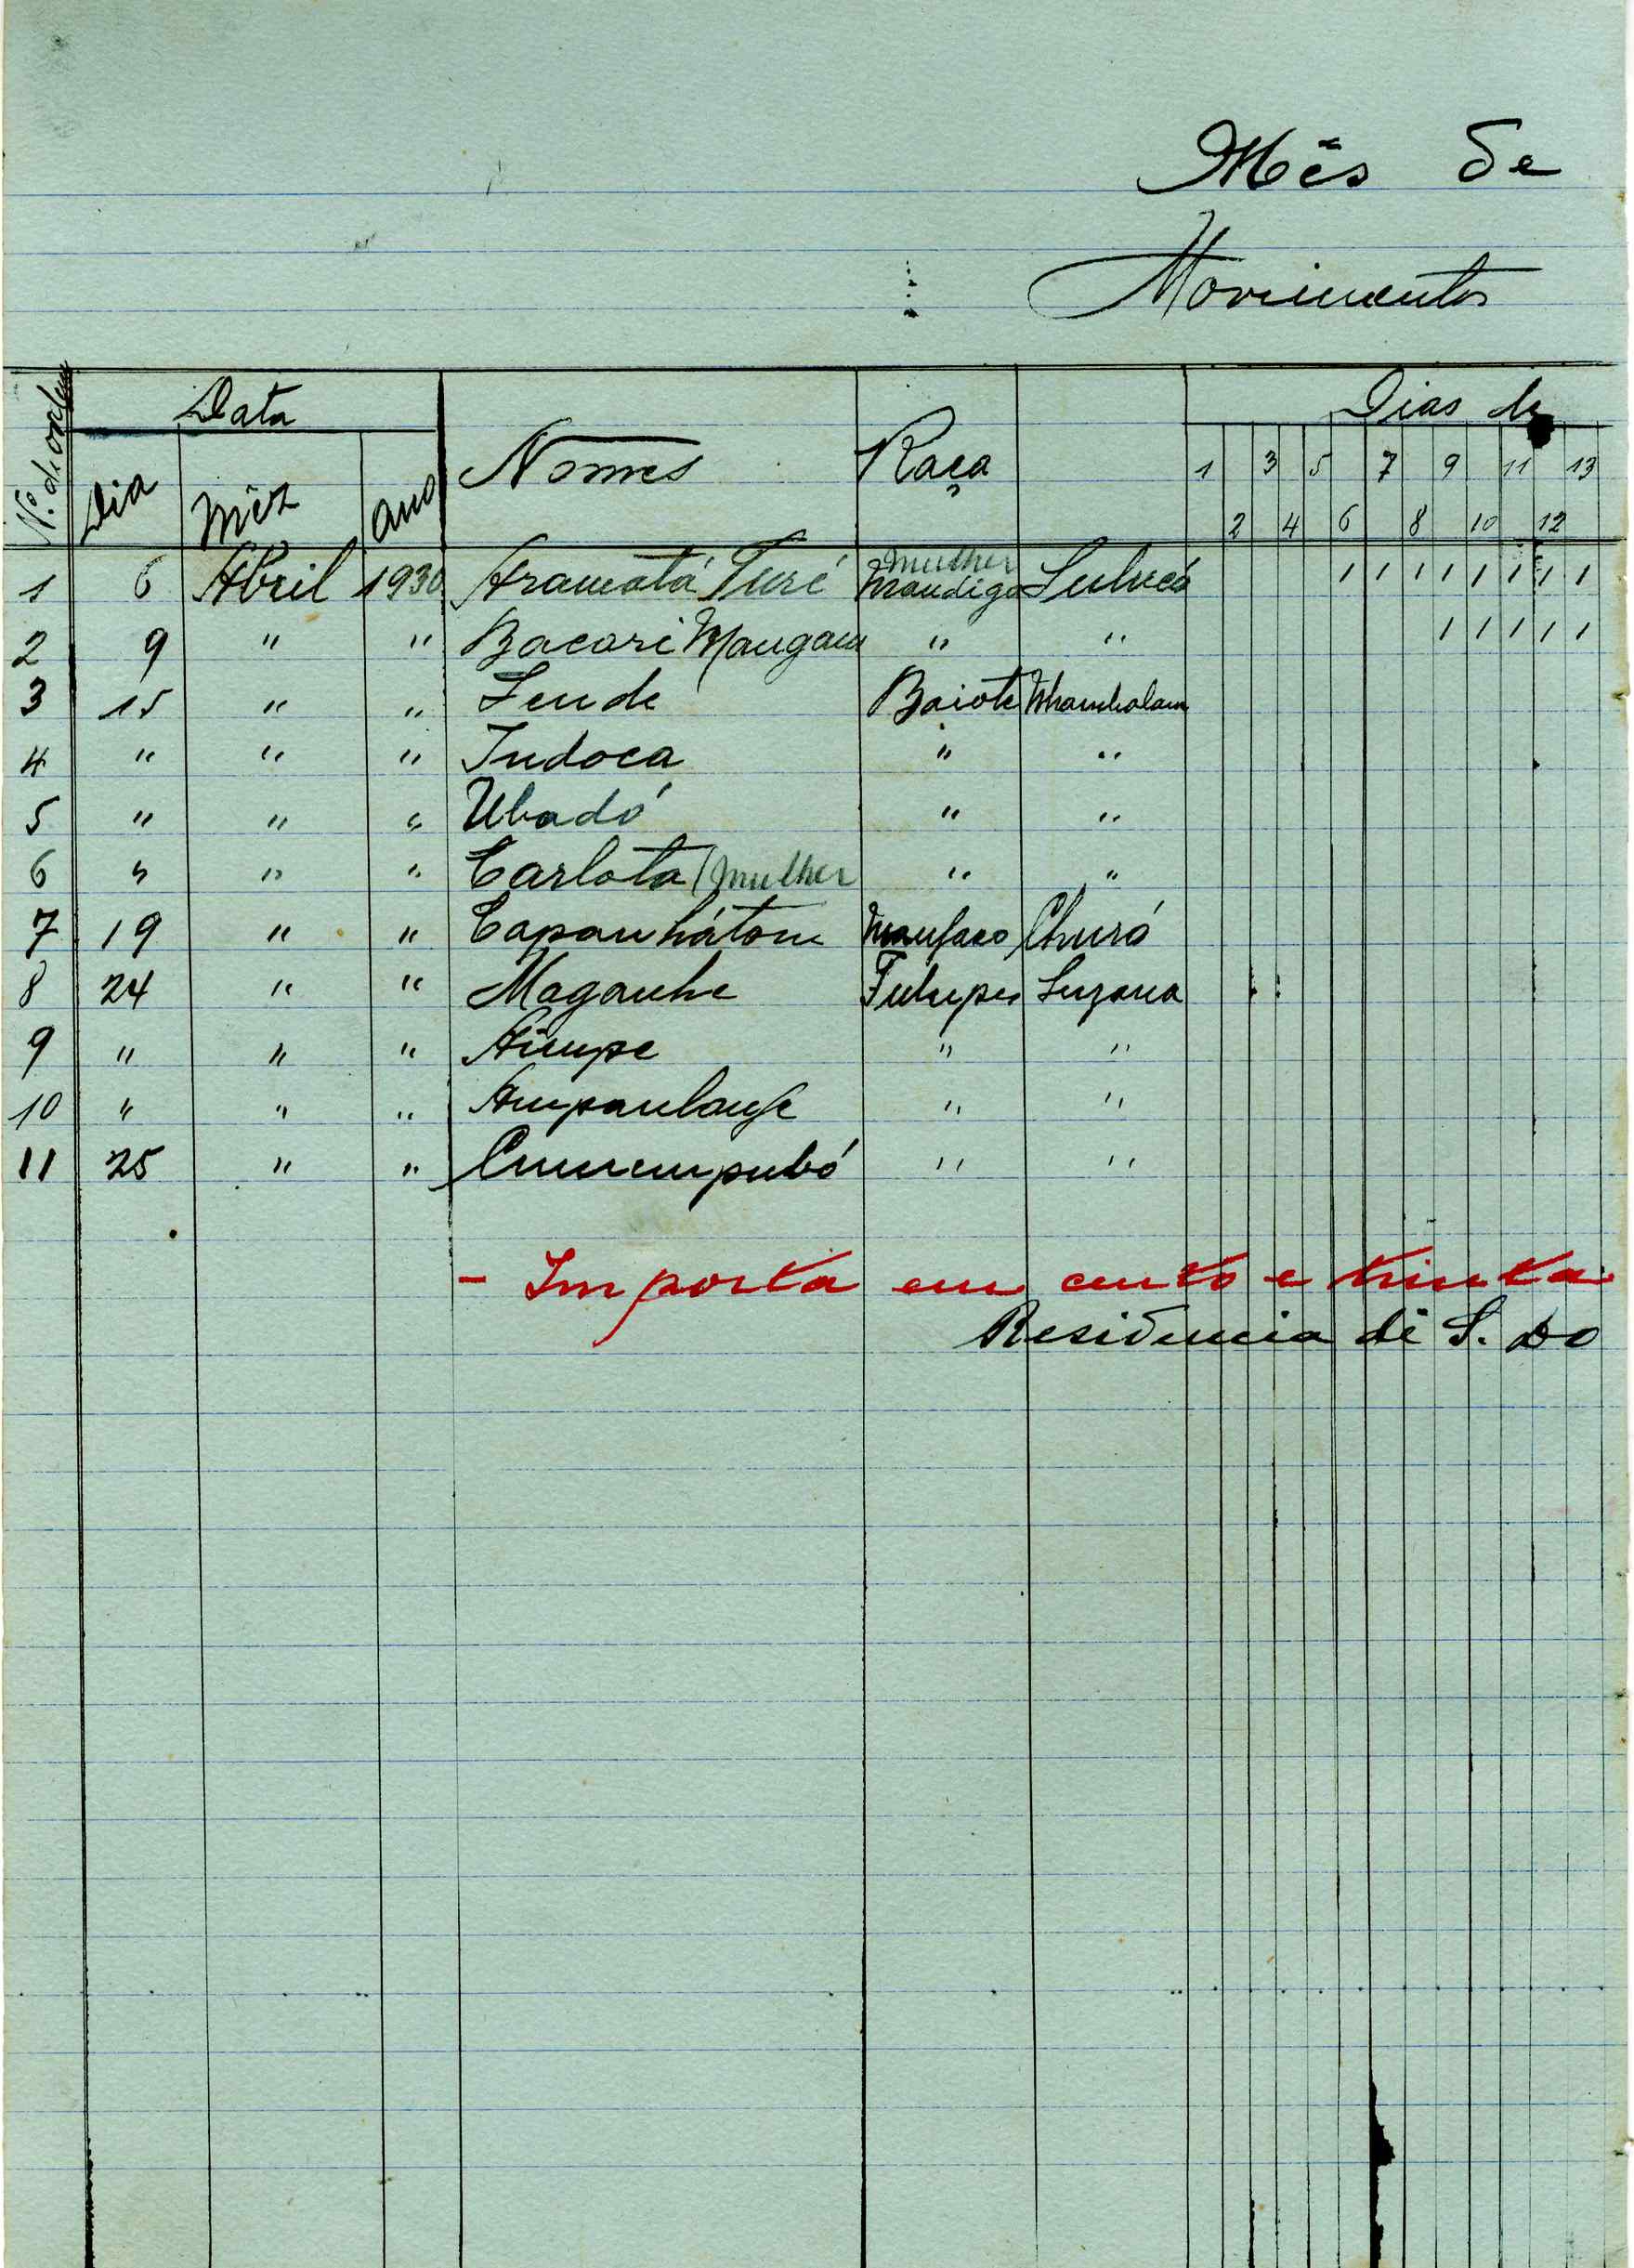 Mês de
Movimentos
Nº de ordem Data Nomes Raça Dias de
Dia Mêz Ano 1 3 5 7 9 11 13
2 4 6 8 10 12
mulher
1 6 Abril 1930 Aramatá Turé Mandiga Sulucó 1 1 1 1 1 1 1 1
2 9 " " Bacari " " 1 1 1 1 1
3 15 " " Baiote
4 " " " Indoca " "
5 " " " Ubadó " "
6 " " " Carlota (mulher " "
7 19 " " Manfaco Churó
8 24 " " Maganhe Fulupes Suzana
9 " " " " "
10 " " " " "
11 25 " " " "
- Importa em cento e trinta
Residencia de S. Do